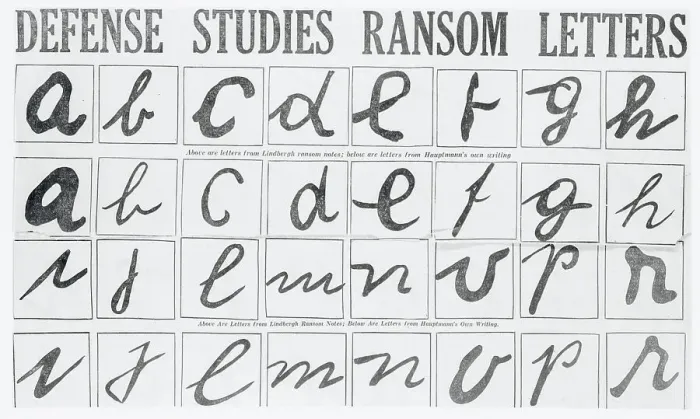 DEFENSE STUDIES RANSOM LETTERS
a b c d e f g h
Above are letters from Lindbergh ransom notes; below are letters from Hauptmann's own writing
a b c d e f g h
i j l m n o p r
Above Are Letters from Lindbergh Ransom Notes; Below Are Letters from Hauptmann's Own Writing.
i j l m n o p r